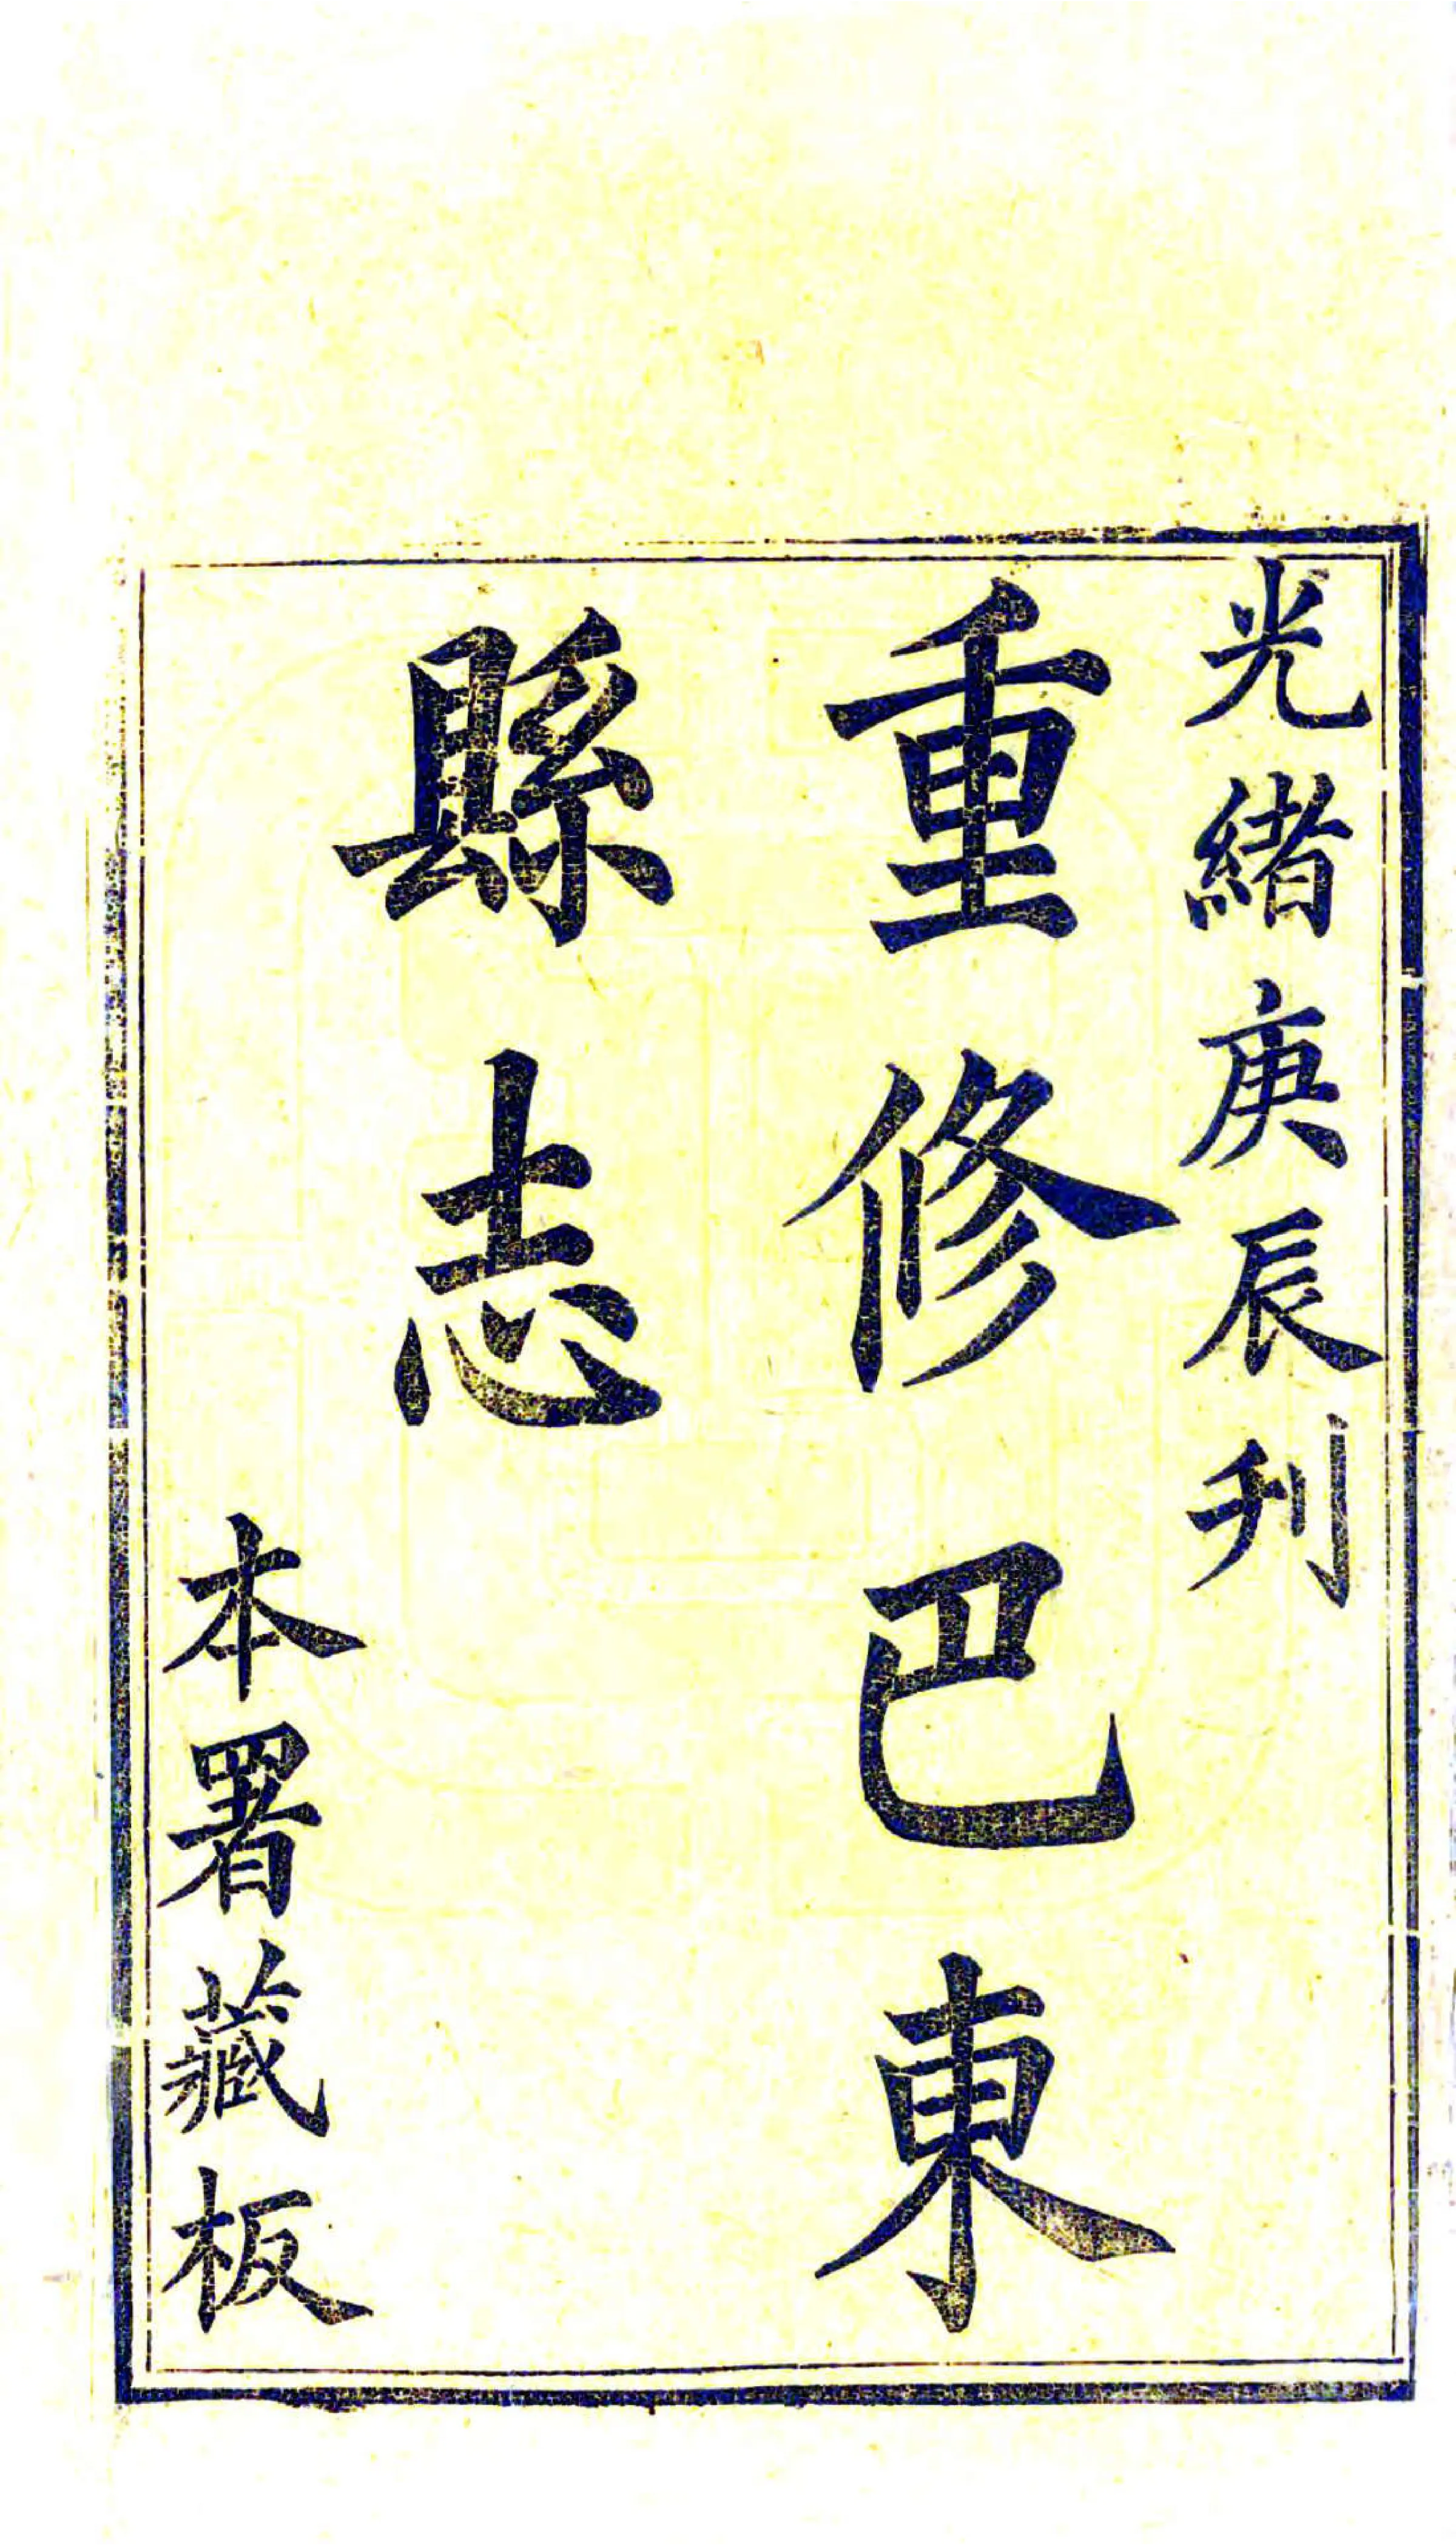 光緒庚辰刋
重修巴東
縣志
本署藏板